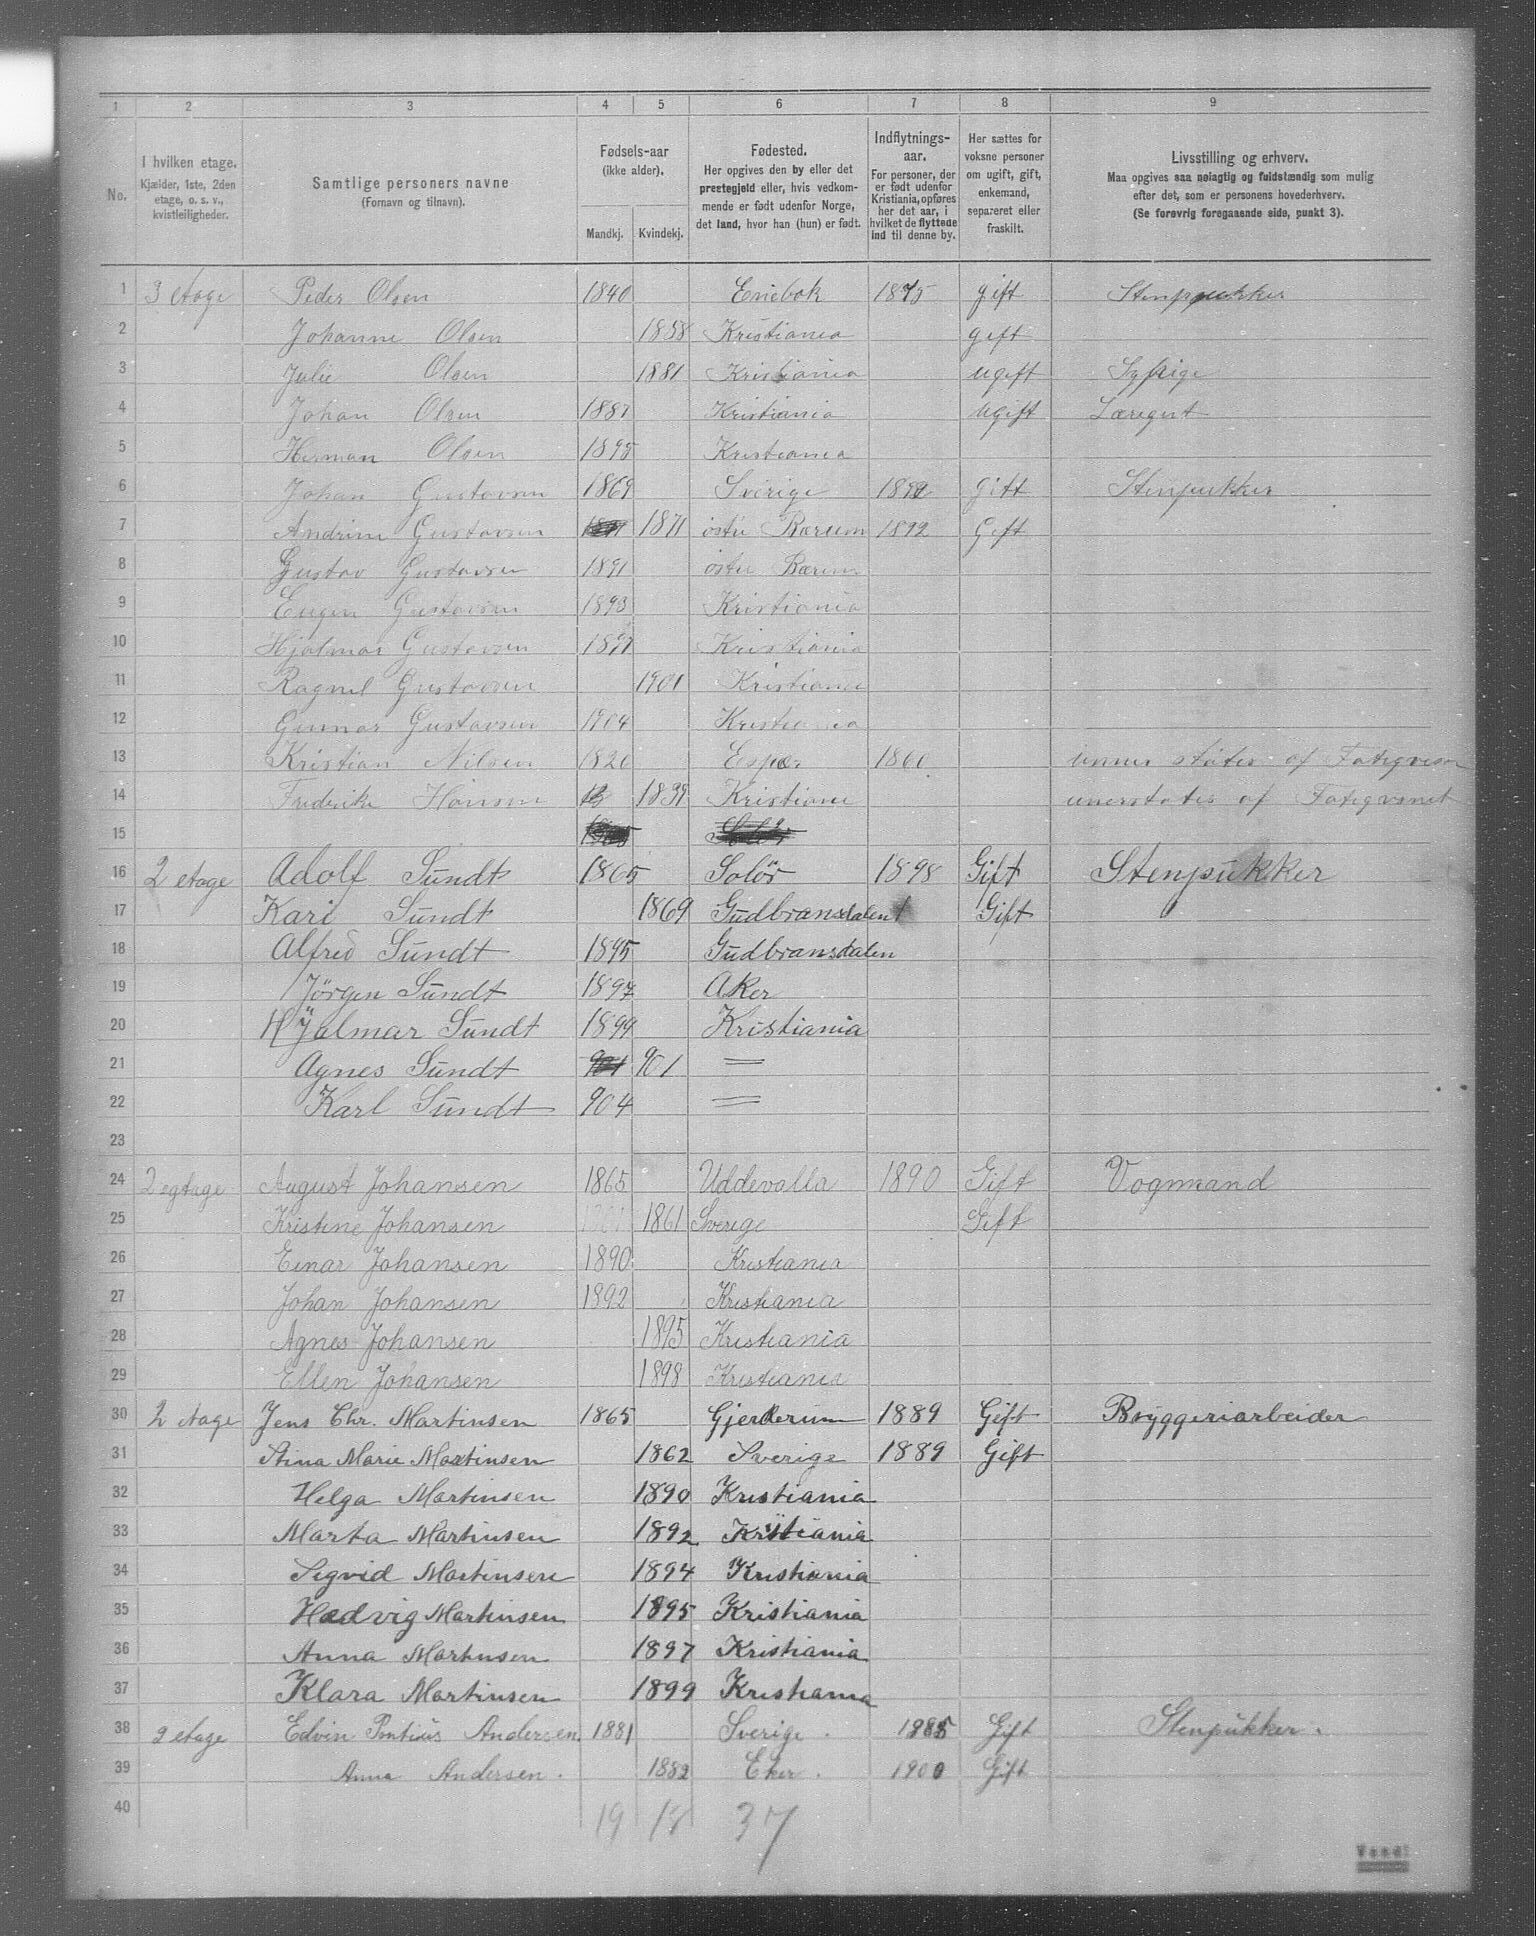 1 2 3 4 5 6 7 8 9
No.
I hvilken etage.
Kjælder, 1ste, 2den
etage, o. s. v.,
kvistleiligheder.
Samtlige personers navne
(Fornavn og tilnavn).
Fødsels-aar
(ikke alder).
Mandkj. Kvindekj.
Fødested.
Her opgives den by eller det
prestegjeld eller, hvis vedkom-
mende er født udenfor Norge,
det land, hvor han (hun) er født.
Indflytnings-
aar.
For personer, der
er født udenfor
Kristiania, opføres
her det aar, i
hvilket de flyttede
ind til denne by.
Her sættes for
voksne personer
om ugift, gift,
enkemand,
separeret eller
fraskilt.
Livsstilling og erhverv.
Maa opgives saa nøiagtig og fuldstændig som mulig
efter det, som er personens hovederhverv.
(Se forøvrig foregaaende side, punkt 3).
1 3 etage Peder Olsen 1840 Enebok 1875 gift Stenpukker
2 Johanne Olsen 1858 Kristiania gift
3 Julie Olsen 1881 Kristiania ugift Sypige
4 Johan Olsen 1887 Kristiania ugift Læregut
5 Herman Olsen 1895 Kristiania
6 Johan Gustavsen 1869 Sverige Gift Stenpukker
7 Andrine Gustavsen 1871 østre Bærum 1892 Gift
8 Gustav Gustavsen 1891 østre Bærum
9 Eugen Gustavsen 1893 Kristiania
10 Hjalmar Gustavsen 1897 Kristiania
11 Ragnil Gustavsen 1901 Kristiania
12 Gunnar Gustavsen 1904 Kristiania
13 Kristian Nilsen 1820 1860 af Fatigvesn
14 Frederike Hansen Kristiani af Fatigvsnet
15
16 2 etage Adolf Sundt 1865 Solör 1898 Gift Stenpukker
17 Kari Sundt 1869 Gudbransdalen Gift
18 Alfred Sundt 1895 Gudbransdalen
19 Jörgen Sundt 1897 Aker
20 Hjalmar Sundt 1899 Kristiania
21 Agnes Sundt 901 =
22 Karl Sundt 904 =
23
24 2 egtage August Johansen 1865 Uddevalla 1890 Gift Vogmand
25 Kristine Johansen 1861 Sverige Gift
26 Einar Johansen 1890 Kristiania
27 Johan Johansen 1892 Kristiania
28 Agnes Johansen 1895 Kristiania
29 Ellen Johansen 1898 Kristiania
30 2 etage Jens Chr. Martinsen 1865 Gjerderum 1889 Gift Bryggeriarbeider
31 Stina Marie Martinsen 1862 Sverige 1889 Gift
32 Helga Martinsen 1890 Kristiania
33 Marta Martinsen 1892 Kristiania
34 Sigvid Martinsen 1894 Kristiania
35 Hædvig Martinsen 1895 Kristiania
36 Anna Martinsen 1897 Kristiania
37 Klara Martinsen 1899 Kristiania
38 2 etage Edvin Pontius Andersen. 1881 Sverige. 1885 Gift Stenpukker.
39 Anna Andersen. 1882 Eker. 1900 Gift
40 19 18 37
Vend!